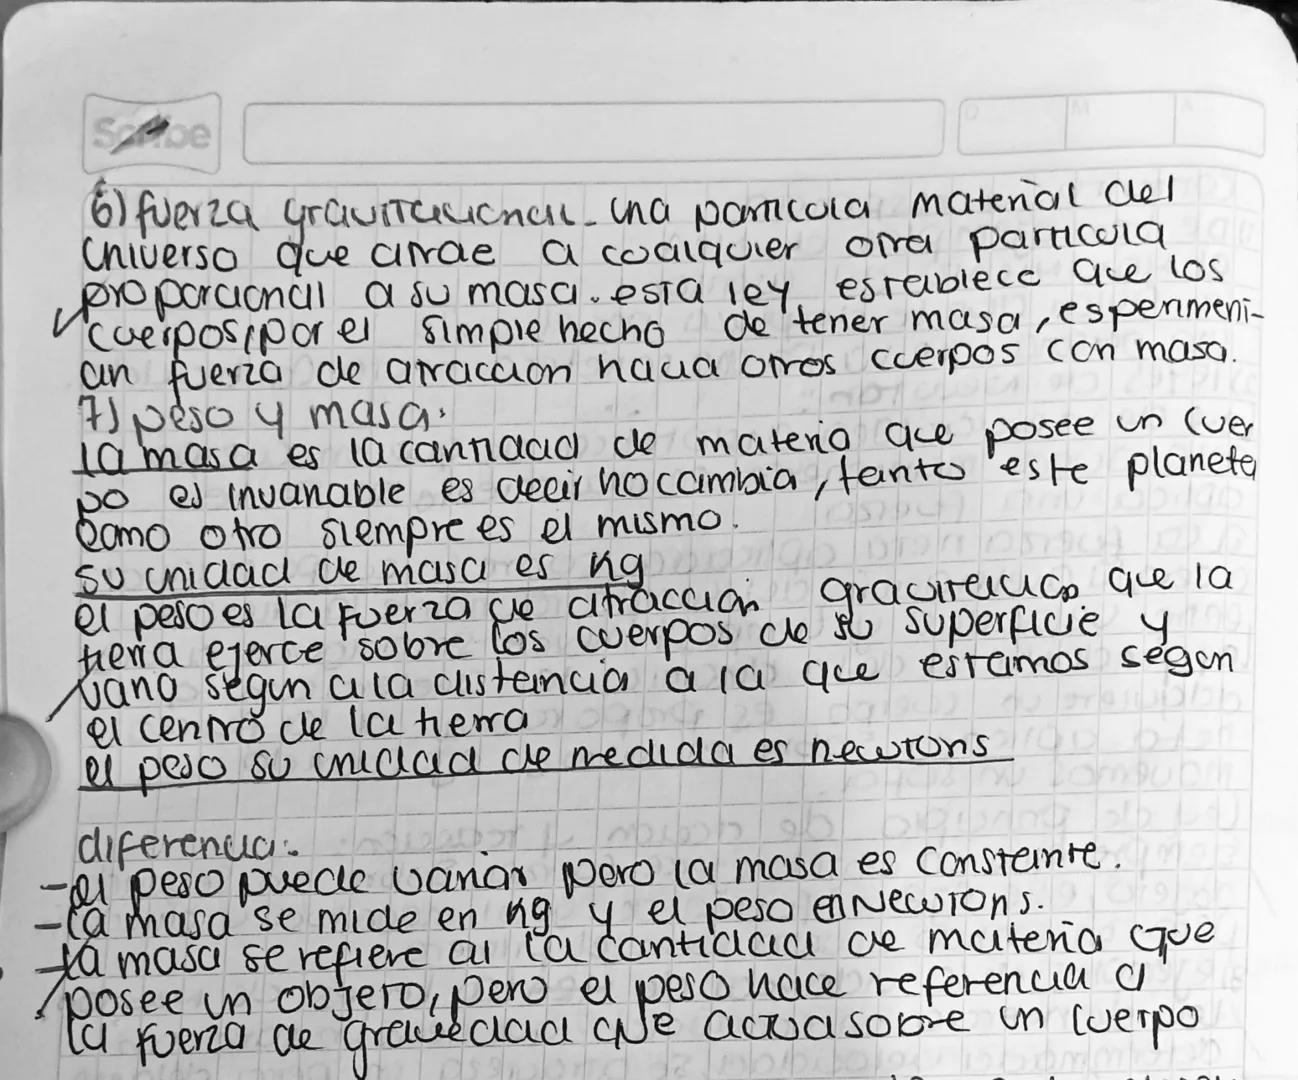 Scribe
D M A
6) fuerza gravitacional - una particula material del
universo que atrae a coalquier otra particula
proporcional a su masa. esta ley establece que los
cuerpos, por el simple hecho de tener masa, esperiment-
an fuerza de atraccion hacia otros cuerpos con masa.
7) peso y masa:
la masa es la cantidad de materia que posee un cuer
po es invariable es decir no cambia, tanto este planeta
como otro siempre es el mismo.
su unidad de masa es kg
el peso es la fuerza de atracción gravitatica que la
tierra ejerce sobre los cuerpos de su superficie y
varia segun a la distancia a la que estamos segun
el centro de la tierra
el peso su unidad de medida es newtons
diferencia:
- el peso puede variar pero la masa es constante.
- la masa se mide en kg y el peso en Newtons.
- la masa se refiere a la cantidad de materia que
posee un objeto, pero el peso hace referencia a
la fuerza de gravedad que actua sobre un cuerpo